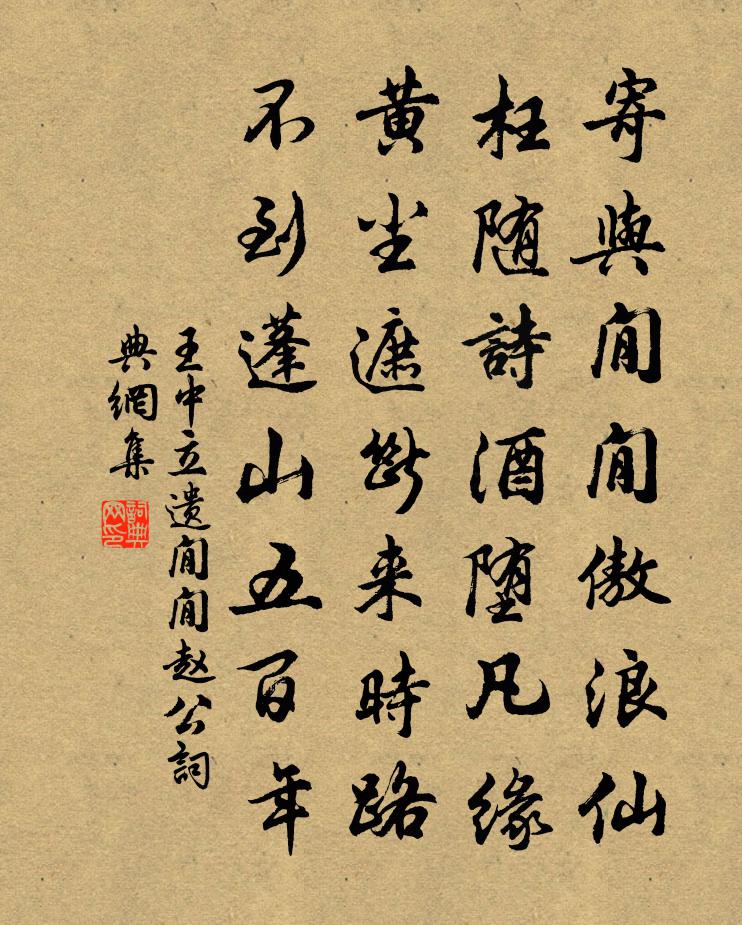 寄與閒閒傲浪仙
枉随詩酒堕凡緣
黄尘遮断来時路
不到蓬山五百年
王中立遗閒閒赵公詞
典網集
詞典网印